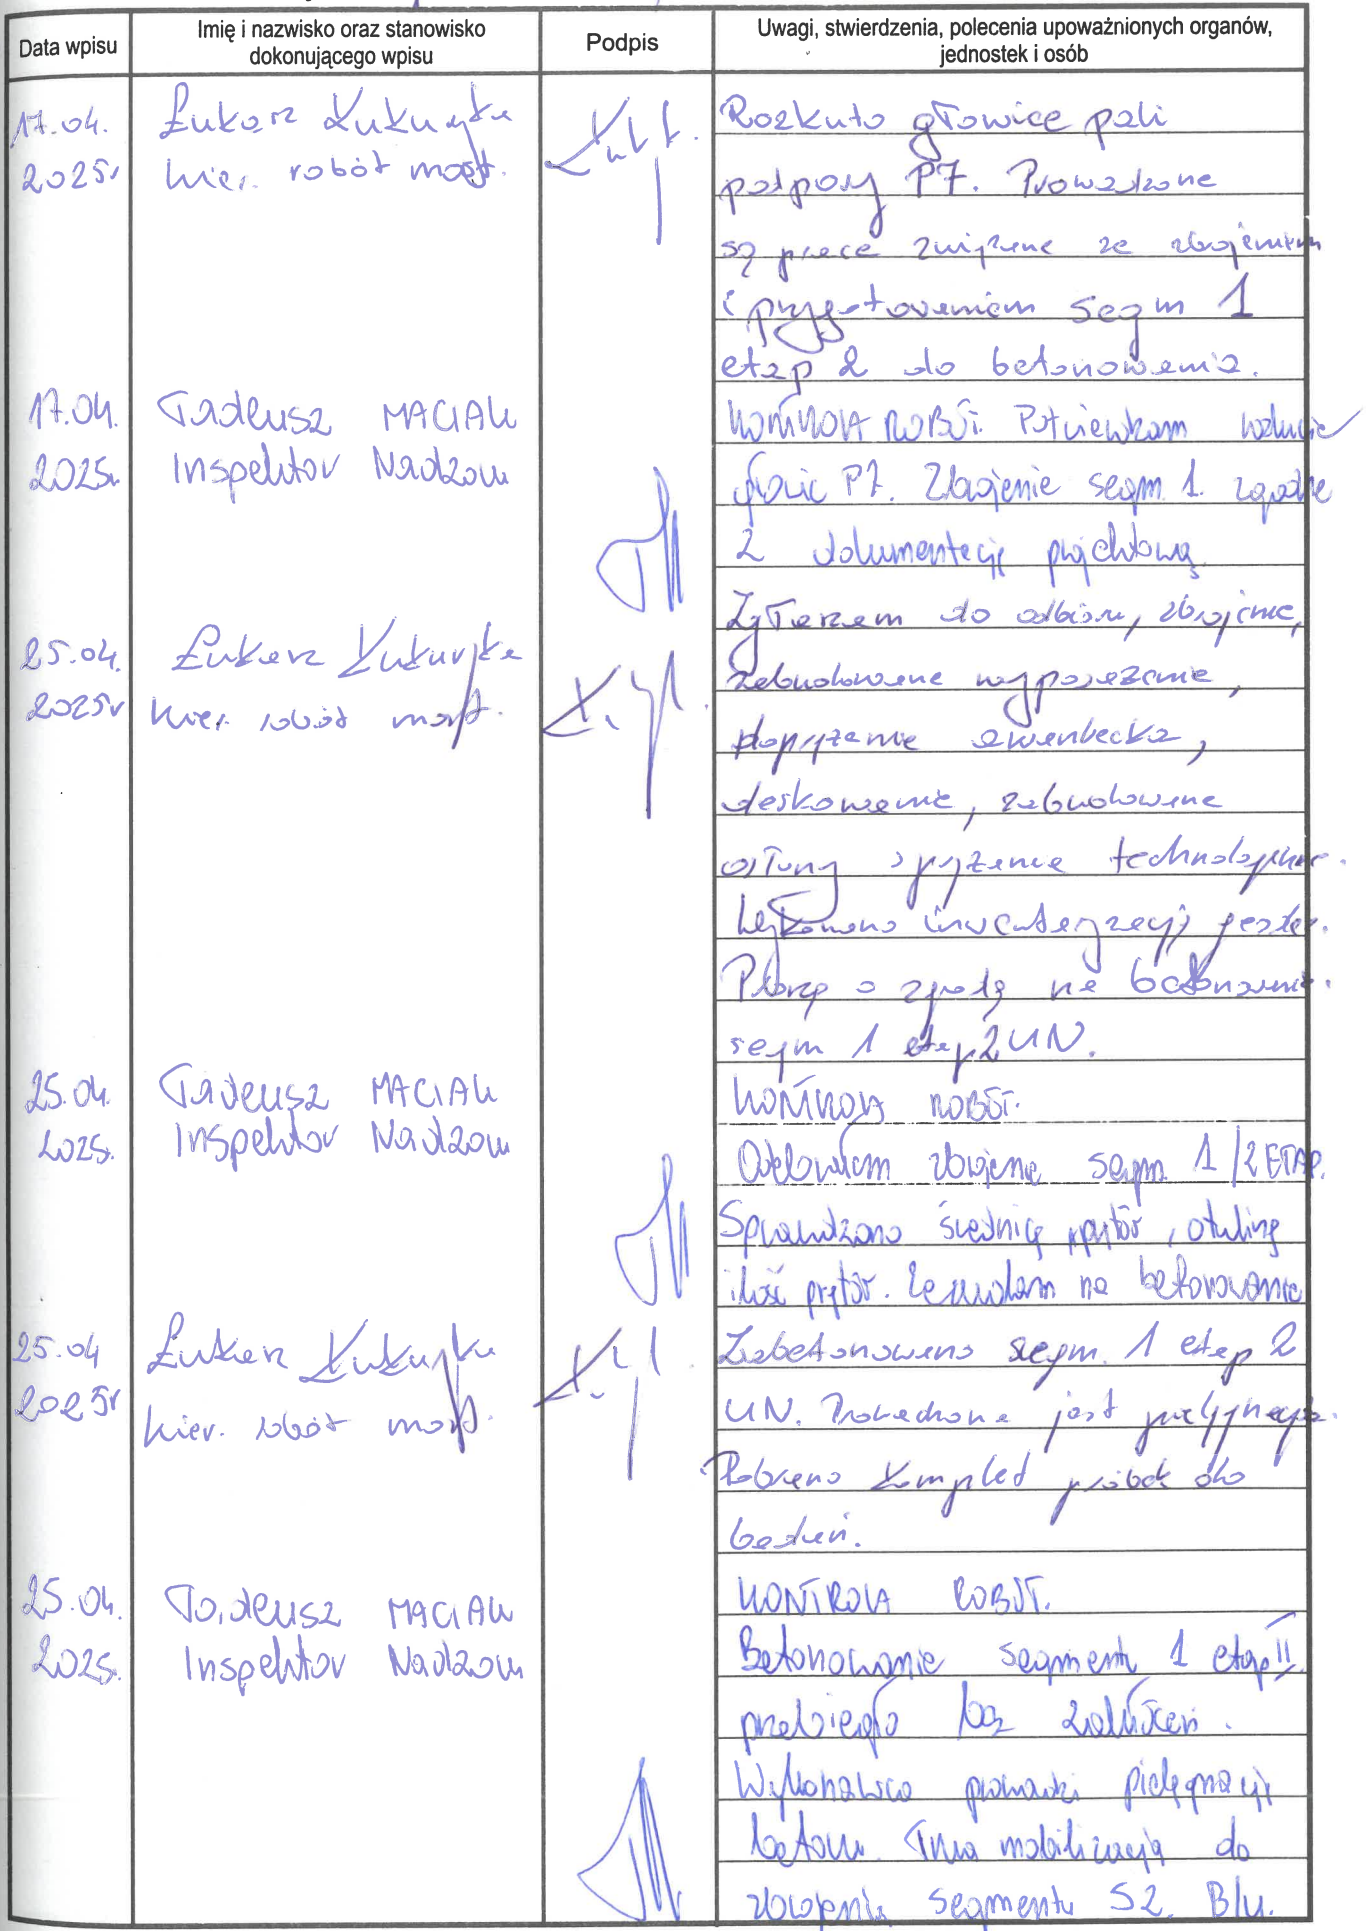 Data wpisu
Imię i nazwisko oraz stanowisko
dokonującego wpisu
Podpis
Uwagi, stwierdzenia, polecenia upoważnionych organów,
jednostek i osób
17.04.
2025r
Łukasz
kier. robót most.
Rozkuto głowice pali
podpory P7. Prowadzone
są prace związane ze zbrojeniem
i przygotowaniem segm 1
etap 2 do betonowania.
17.04.
2025r.
Tadeusz MACIAK
Inspektor Nadzoru
KONTROLA ROBÓT. Potwierdzam rozkucie
głowic P7. Zbrojenie segm. 1. zgodne
z dokumentacją projektową
25.04.
2025r
Łukasz
kier. robót most.
Zgłaszam do odbioru, zbrojenie,
zabudowane wyposażenie,
deskowanie, zabudowane
osłony sprężenie technologiczne.
Wykonano inwentaryzację geodez.
Proszę o zgodę na betonowanie.
segm 1 etap 2 UN.
25.04.
2025.
Tadeusz MACIAK
Inspektor Nadzoru
KONTROLA ROBÓT.
Odebrałem zbrojenie segm. 1/2 ETAP.
Sprawdzono średnicę prętów, otulinę
ilość prętów. Zezwalam na betonowanie
25.04
2025r
Łukasz
kier. robót most.
Zabetonowano segm. 1 etap 2
UN. Prowadzona jest pielęgnacja.
Pobrano komplet próbek do
badań.
25.04.
2025.
Tadeusz MACIAK
Inspektor Nadzoru
KONTROLA ROBÓT.
Betonowanie segmentu 1 etap II
przebiegło bez zakłóceń.
Wykonawca prowadzi pielęgnację
betonu. Trwa mobilizacja do
zbrojenia segmentu S2. B/u.